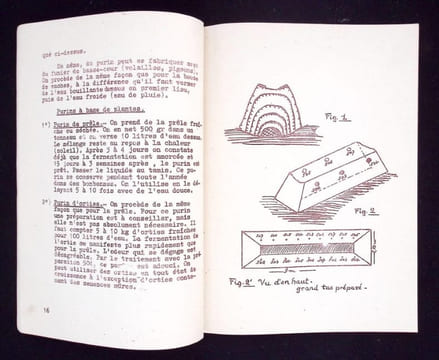 qué ci-dessus.
De même, du purin peut se fabriquer avec
du fumier de basse-cour (volailles, pigeons).
On procède de la même façon que pour la bouse
de vaches, à la différence qu'il faut verser
de l'eau bouillante dessus en premier lieu,
puis de l'eau froide (eau de pluie).
Purins à base de plantes.
1°) Purin de prêle.- On prend de la prêle fraî-
che ou séchée. On en met 500 gr dans un
tonneau et on verse 10 litres d'eau dessus.
Le mélange reste au repos à la chaleur
(soleil). Après 3 à 4 jours on constate
déjà que la fermentation est amorcée et
15 jours à 3 semaines après, le purin est
prêt. Passer le liquide au tamis. Ce pu-
rin se conserve pendant toute l'année
dans des bonbonnes. On l'utilise en le dé-
layant 5 à 10 fois avec de l'eau douce.
2°) Purin d'orties.- On procède de la même
façon que pour la prêle. Pour ce purin
une préparation est à conseiller, mais
elle n'est pas absolument nécessaire. Il
faut compter 5 à 10 kg d'orties fraîches
pour 100 litres d'eau. La fermentation de
l'ortie se manifeste plus rapidement que
pour la prêle. L'odeur qui se dégage est
désagréable. Par le traitement avec la pré-
paration 504, ce adouci. On
peut utiliser des orties en tout état de
croissance à l'exception d'orties conte-
nant des semences mûres.
16
Fig. 1.
Fig. 2
Fig. 2' Vu d'en haut.
grand tas préparé.